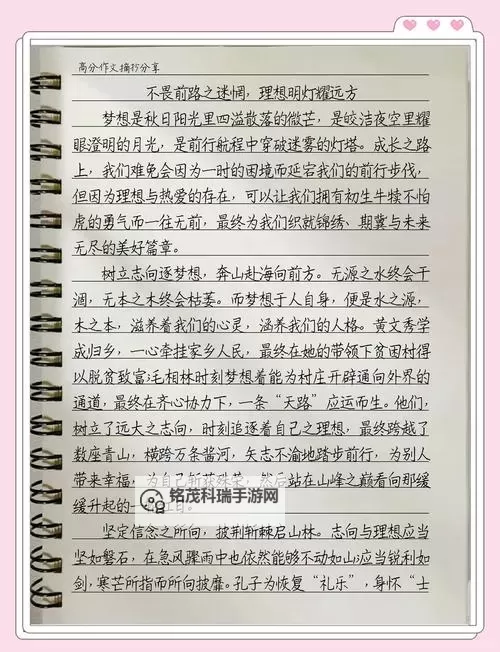 高分作文摘抄分享
不畏前路之迷惘，理想明灯耀远方
梦想是秋日阳光里四溢散落的微芒，是皎洁夜空里耀
眼澄明的月光，是前行航程中穿破迷雾的灯塔。成长之路
上，我们难免会因为一时的困境而延宕我们的前行步伐，
但因为理想与热爱的存在，可以让我们拥有初生牛犊不怕
虎的勇气而一往无前，最终为我们织就锦绣、期冀与未来
无尽的美好篇章。
树立志向逐梦想，奔山赴海向前方。无源之水终会干
涸，无本之木终会枯萎。而梦想于人自身，便是水之源，
木之本，滋养着我们的心灵，涵养我们的人格。黄文秀学
成归乡，一心牵挂家乡人民，最终在她的带领下贫困村得
以脱贫致富；毛相林时刻梦想着能为村庄开辟通向外界的
通道，最终在齐心协力下，一条“天路”应运而生。他们，
树立了远大之志向，时刻追逐着自己之理想，最终跨越了
数座青山，横跨万条酱河，矢志不渝地踏步前行，为别人
带来幸福，为自己斩获殊荣，然后站在山峰之巅看向那缓
缓升起的一 日。
铭茂科瑞手游网
坚定信念之所向，披荆斩棘启山林。志向与理想应当
坚如磐石，在急风骤雨中也依然能够不动如山；应当锐利如
剑，寒芒所指而所向披靡。孔子为恢复“礼乐”，身怀“士